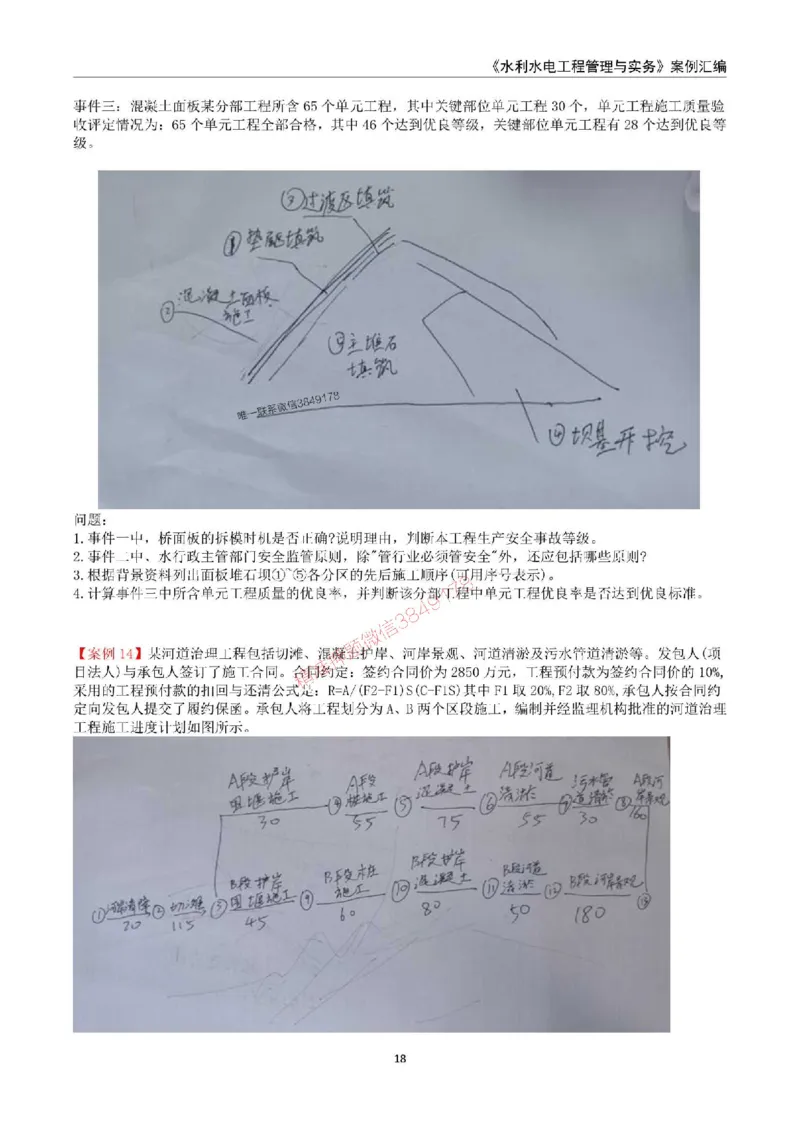 《水利水电工程管理与实务》案例汇编
事件三：混凝土面板某分部工程所含 65 个单元工程，其中关键部位单元工程 30 个，单元工程施工质量验
收评定情况为：65 个单元工程全部合格，其中 46 个达到优良等级，关键部位单元工程有 28 个达到优良等
级。
③过渡区填筑
①垫层填筑
②混凝土面板
施工
⑤主堆石
填筑
唯一联系微信3849178
④坝基开挖
问题：
1.事件一中，桥面板的拆模时机是否正确?说明理由，判断本工程生产安全事故等级。
2.事件二中、水行政主管部门安全监管原则，除"管行业必须管安全"外，还应包括哪些原则?
3.根据背景资料列出面板堆石坝①~⑤各分区的先后施工顺序(可用序号表示)。
4.计算事件三中所含单元工程质量的优良率，并判断该分部工程中单元工程优良率是否达到优良标准。
【案例 14】某河道治理工程包括切滩、混凝土护岸、河岸景观、河道清淤及污水管道清淤等。发包人(项
目法人)与承包人签订了施工合同。合同约定：签约合同价为 2850 万元，工程预付款为签约合同价的 10%,
采用的工程预付款的扣回与还清公式是：R=A/(F2-F1)S(C-F1S)其中 F1 取 20%,F2 取 80%,承包人按合同约
定向发包人提交了履约保函。承包人将工程划分为 A、B 两个区段施工，编制并经监理机构批准的河道治理
工程施工进度计划如图所示。
A段护岸 A段 A段护岸 A段河道 污水管 A段河
围堰施工 ④ 桩施工 ⑤ 混凝土 ⑥ 清淤 ⑦ 道清淤 ⑧ 岸景观
30 55 75 55 30 160
B段护岸 B段木桩 B段护岸 B段河道
① ② 切滩 ③ 围堰施工 ⑨ 施工 ⑩ 混凝土 ⑪ 清淤 ⑫ B段河岸景观
20 115 45 60 80 50 180
18